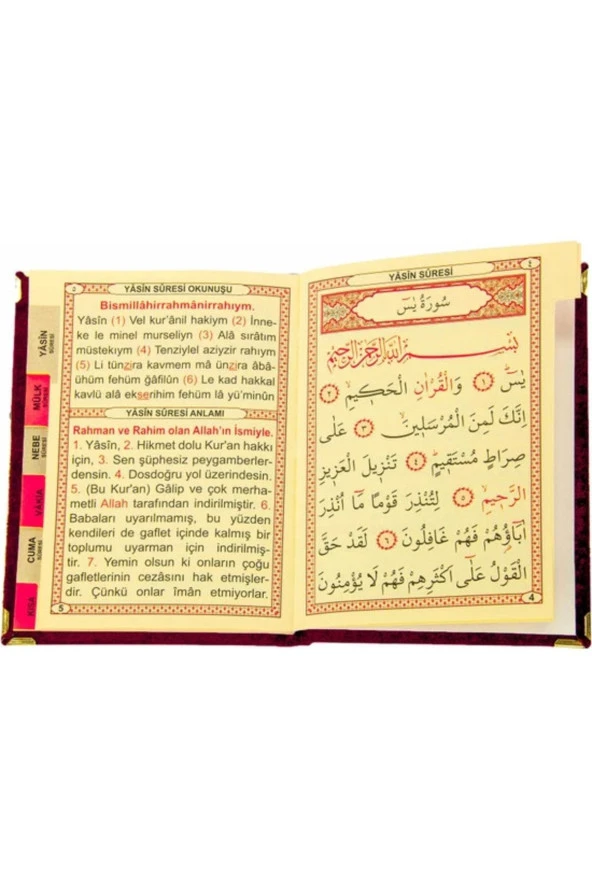 YÂSÎN SÛRESİ
٤
سُورَةُ يٰسٓ
بِسْمِ اللّٰهِ الرَّحْمٰنِ الرَّحِيمِ
يٰسٓ ١ وَالْقُرْاٰنِ الْحَكِيمِ ٢
اِنَّكَ لَمِنَ الْمُرْسَلِينَ ٣ عَلٰى
صِرَاطٍ مُسْتَقِيمٍ ٤ تَنْزِيلَ الْعَزِيزِ
الرَّحِيمِ ٥ لِتُنْذِرَ قَوْمًا مَٓا اُنْذِرَ
اٰبَٓاؤُ۬هُمْ فَهُمْ غَافِلُونَ ٦ لَقَدْ حَقَّ
الْقَوْلُ عَلٰٓى اَكْثَرِهِمْ فَهُمْ لَا يُؤْمِنُونَ
4
YÂSÎN SÛRESİ OKUNUŞU
Bismillâhirrahmânirrahıym.
Yâsîn (1) Vel kur'ânil hakiym (2) İnne-
ke le minel murseliyn (3) Alâ sırâtım
müstekıym (4) Tenziylel aziyzir rahıym
(5) Li tünzira kavmem mâ ünzira âbâ-
ühüm fehüm gâfilûn (6) Le kad hakkal
kavlü alâ ekserihim fehüm lâ yü'minûn
YÂSÎN SÛRESİ ANLAMI
Rahman ve Rahim olan Allah'ın İsmiyle.
1. Yâsîn, 2. Hikmet dolu Kur'an hakkı
için, 3. Sen şüphesiz peygamberler-
densin. 4. Dosdoğru yol üzerindesin.
5. (Bu Kur'an) Gâlip ve çok merha-
metli Allah tarafından indirilmiştir. 6.
Babaları uyarılmamış, bu yüzden
kendileri de gaflet içinde kalmış bir
toplumu uyarman için indirilmiş-
tir. 7. Yemin olsun ki onların çoğu
gafletlerinin cezasını hak etmişler-
dir. Çünkü onlar îmân etmiyorlar.
5
YÂSÎN
SÛRESİ
MÜLK
SÛRESİ
NEBE
SÛRESİ
VÂKIA
CUMA
SÛRESİ